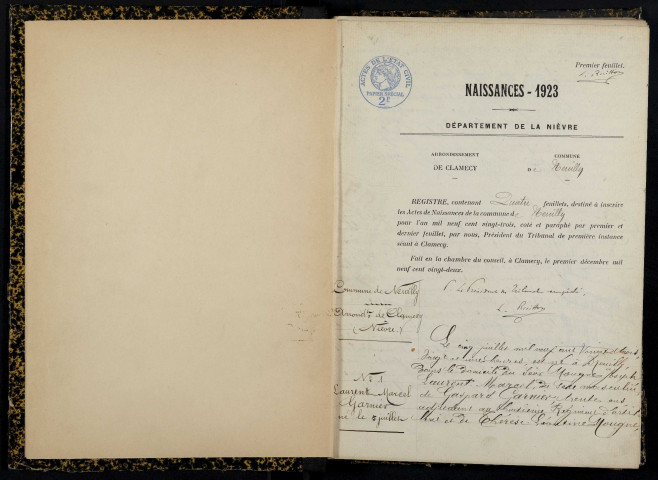 Premier feuillet.
ACTES DE L'ETAT CIVIL
PAPIER SPÉCIAL
2F
NAISSANCES - 1923
DÉPARTEMENT DE LA NIÈVRE
ARRONDISSEMENT
DE CLAMECY
COMMUNE
DE Neuilly
REGISTRE, contenant Quatre feuillets, destiné à inscrire
les Actes de Naissances de la commune de Neuilly
pour l'an mil neuf cent vingt-trois, coté et paraphé par premier et
dernier feuillet, par nous, Président du Tribunal de première instance
séant à Clamecy.
Fait en la chambre du conseil, à Clamecy, le premier décembre mil
neuf cent vingt-deux.
Le Président du Tribunal empêché,
Commune de Neuilly
Arrondt de Clamecy
(Nièvre)
No 1
Laurent Marcel
Garnier
né le 5 juillet
Le cinq juillet mil neuf cent vingt trois,
heures, est né à Neuilly,
dans le domicile du Sieur
Laurent Marcel, du sexe masculin
de Gaspard Garnier, trente ans
adjudant au Régiment
et de Thérèse